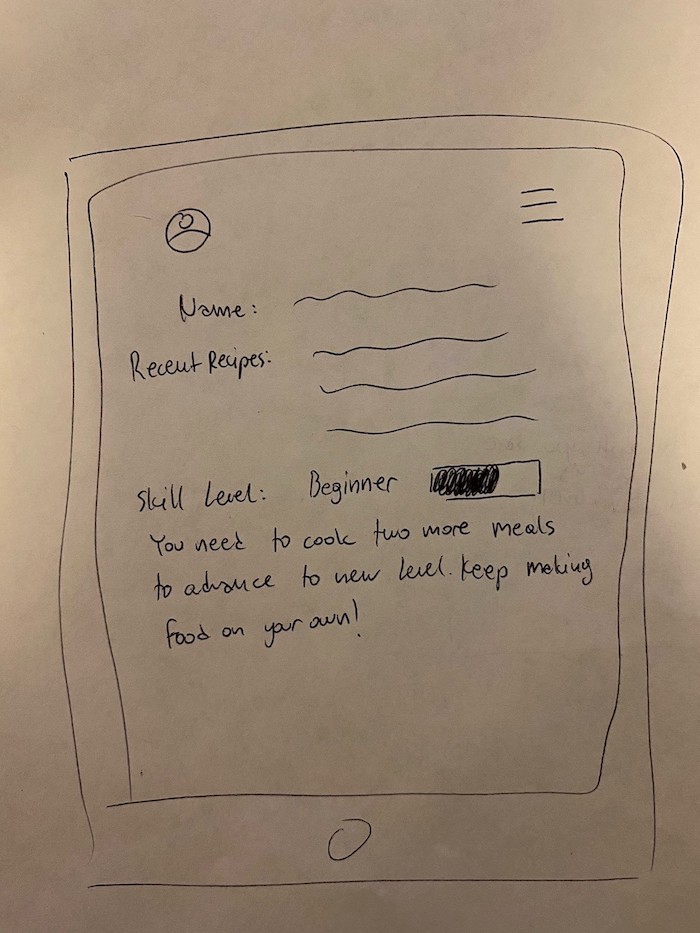 Name:
Recent Recipes:
Skill Level: Beginner
You need to cook two more meals
to advance to new level. Keep making
food on your own!